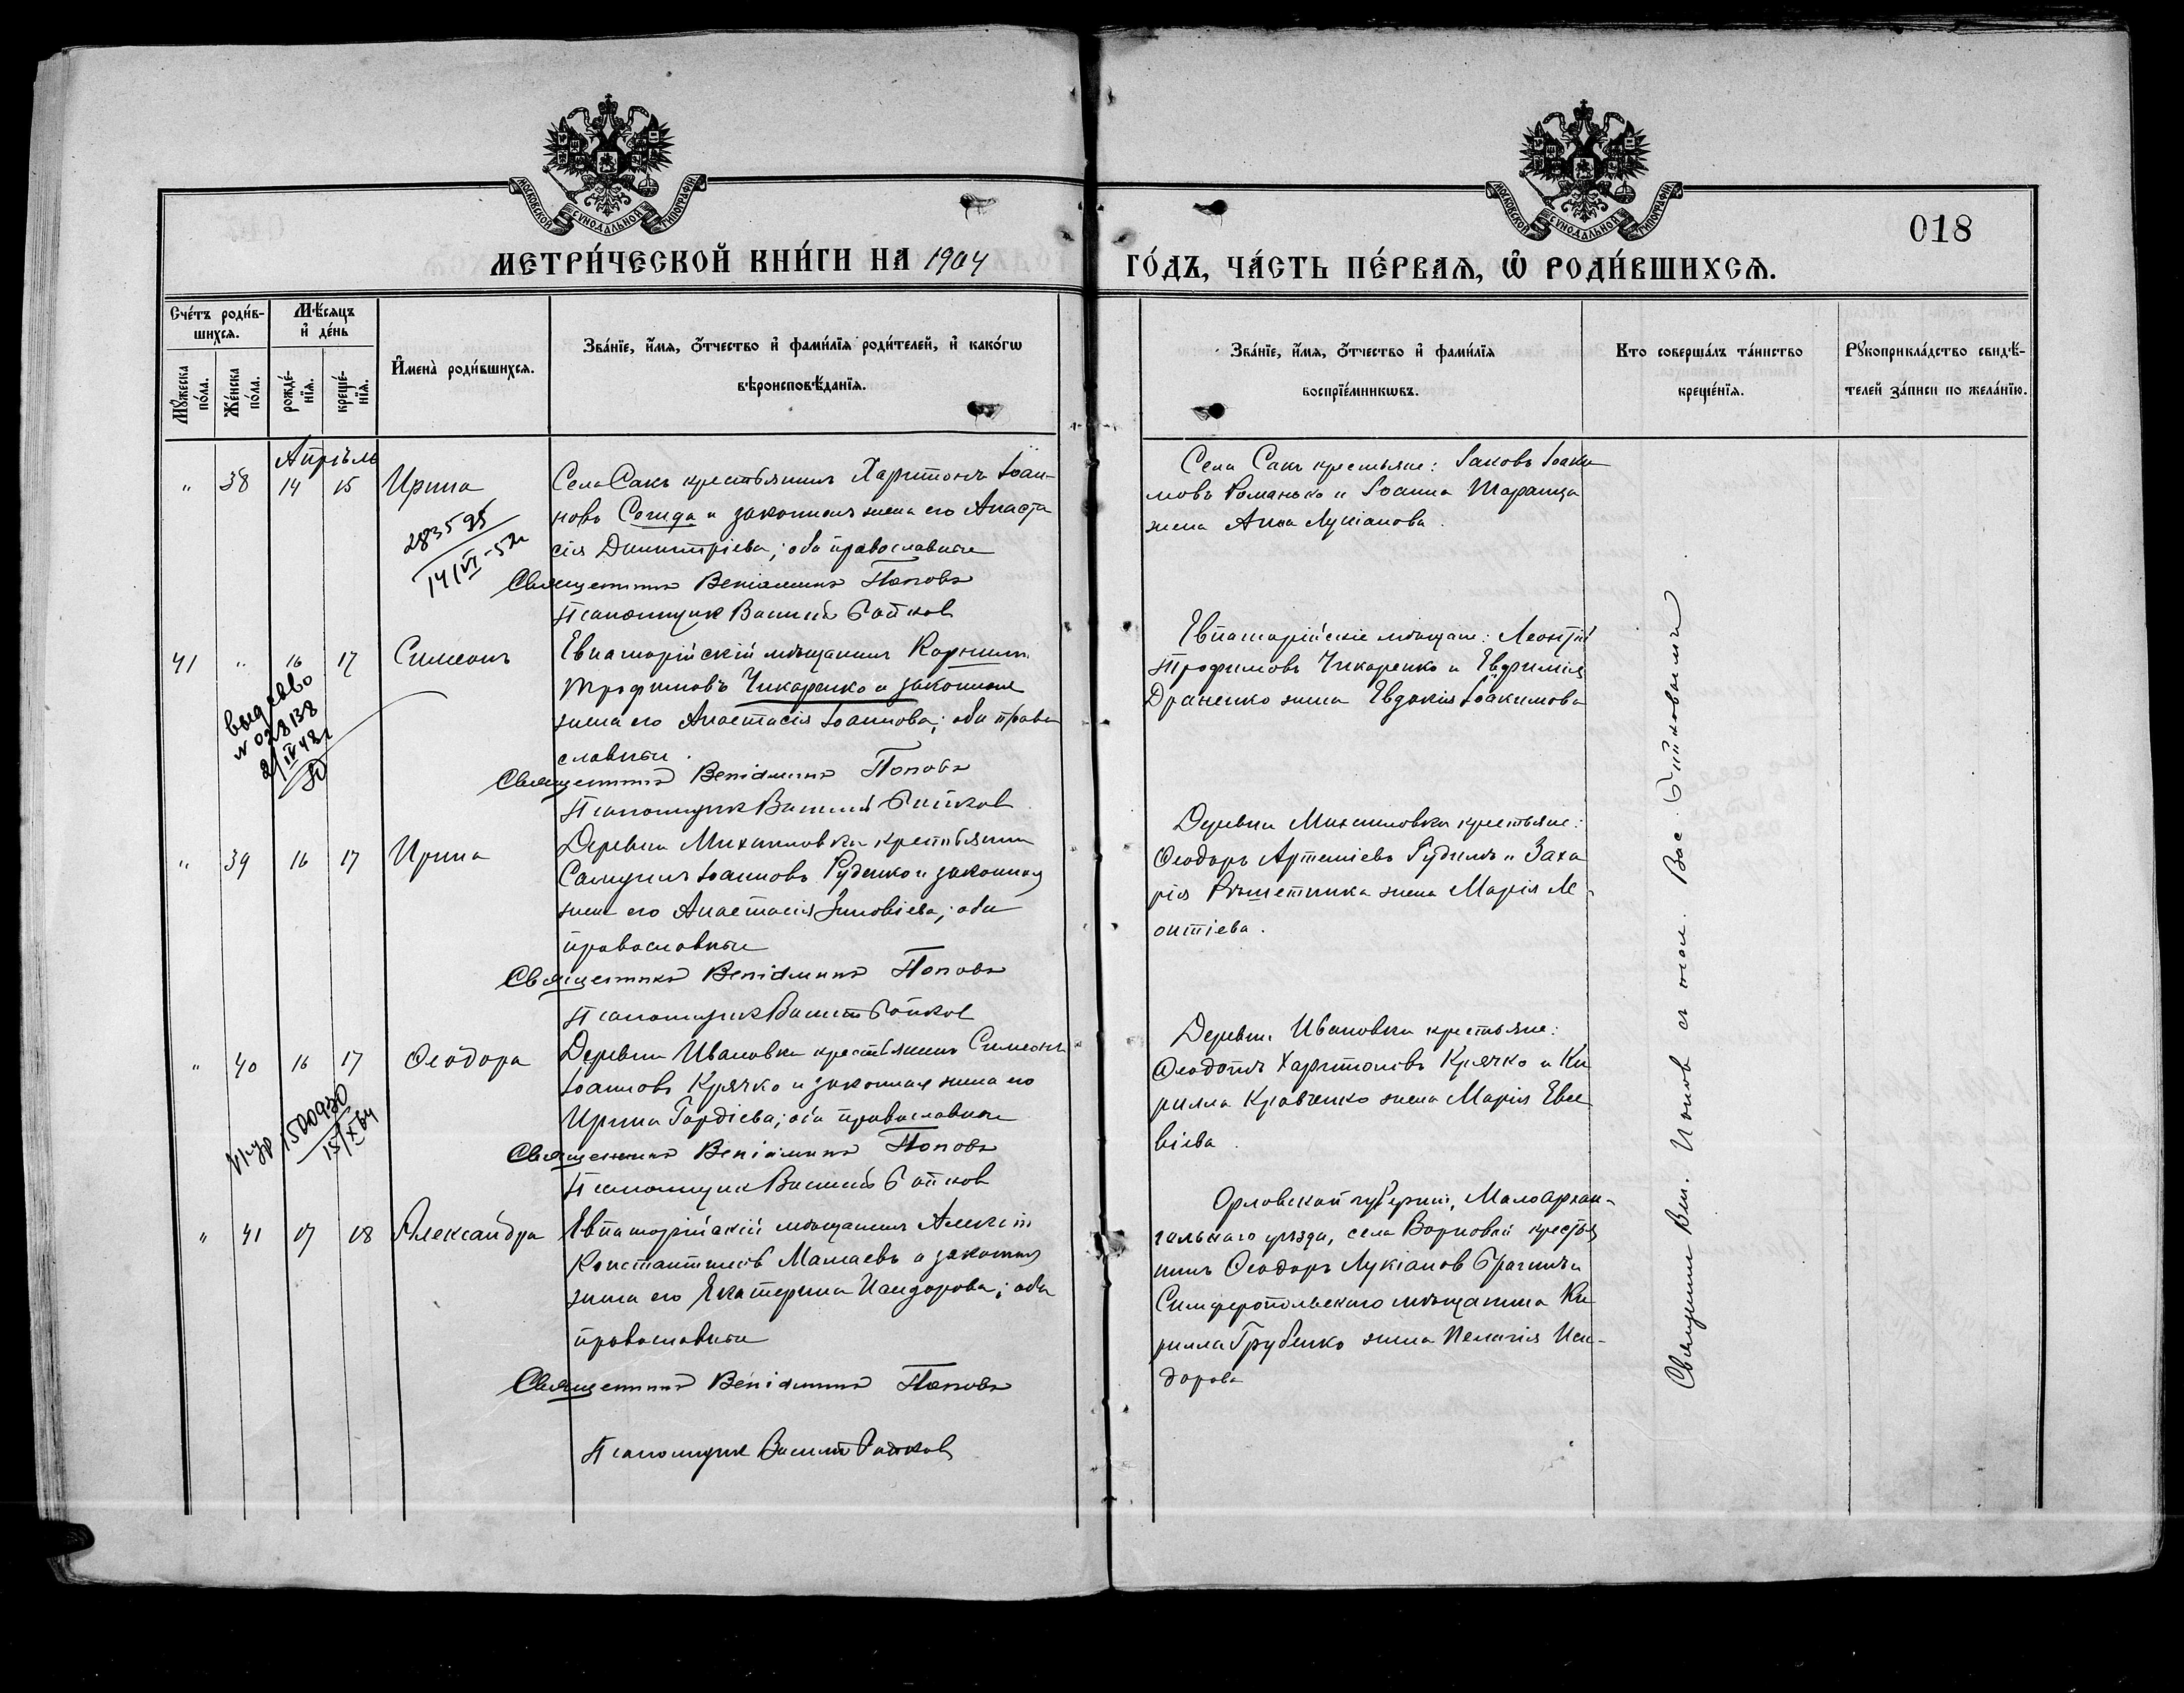 МОСКОВСКОЙ СѴНОДАЛЬНОЙ ТИПОГРАФІИ
МОСКОВСКОЙ СѴНОДАЛЬНОЙ ТИПОГРАФІИ
018
МЕТРИ́ЧЕСКОЙ КНИ́ГИ НА 1904
ГО́ДЪ, ЧА́СТЬ ПЕ́РВАѦ, Ѽ РОДИ́ВШИХСѦ.
Сче́тъ роди́в-
шихсѧ.
Мꙋ́жеска
по́ла.
Же́нска
по́ла.
Мѣ́сѧцъ
и҆ де́нь
рожде́-
нїѧ.
креще́-
нїѧ.
И҆мена̀ роди́вшихсѧ.
Зва́нїе, и҆́мѧ, ѻ҆́тчество и҆ фами́лїѧ роди́телей, и҆ како́гѡ
вѣроисповѣ́данїѧ.
Зва́нїе, и҆́мѧ, ѻ҆́тчество и҆ фами́лїѧ
воспрїе́мникѡвъ.
Кто соверша́лъ та́инство
креще́нїѧ.
Рꙋкоприкла́дство свидѣ́-
телей за́писи по жела́нїю.
Апрѣль
" 38 14 15 Ирина
283595
14/VI-52
Села Сакъ крестьянинъ Харитонъ Іоан-
новъ Согида и законная жена его Анаста
сія Димитріева; оба православные
Священникъ Веніаминъ Поповъ
Псаломщик Василій Бойков
Села Сакъ крестьяне: Іаковъ Іоаки
мовъ Романько и Іоанна Шаранда
жена Анна Лукіанова.
41 " 16 17 Симеонъ
выд св во
N 028138
2/IV 48
Евпаторійскій мѣщанинъ Корнилій
Трофимовъ Чикаренко и законная
жена его Анастасія Іоаннова; оба право
славные.
Священникъ Веніаминъ Поповъ
Псаломщик Василій Бойков
Евпаторійскіе мѣщане: Леонтій
Трофимовъ Чикаренко и Евфимія
Драненко жена Евдокія Іоакимова
" 39 16 17 Ирина
Деревни Михайловки крестьянин
Самуилъ Іоанновъ Руденко и законная
жена его Анастасія Зиновіева; оба
православные
Священникъ Веніаминъ Поповъ
Псаломщик Василій Бойков
Деревни Михайловки крестьяне:
Ѳеодоръ Артеміевъ Рудимъ и Заха
рія Рѣшетника жена Марія Ле-
онтіева.
" 40 16 17 Ѳеодора
1500930
15/X 64
Деревни Ивановки крестьянинъ Симеонъ
Іоанновъ Крячко и законная жена его
Ирина Гордіева; оба православные
Священникъ Веніаминъ Поповъ
Псаломщик Василій Бойков
Деревни Ивановки крестьяне:
Ѳеодотъ Харитоновъ Крячко и Ки
рилла Кравченко жена Марія Евсе
віева.
" 41 17 18 Александра
Евпаторійскій мѣщанинъ Алексѣй
Константиновъ Мамаевъ и законная
жена его Екатерина Исидорова; оба
православные
Священникъ Веніаминъ Поповъ
Псаломщик Василій Бойков
Орловской губерніи, Малоархан-
гельскаго уѣзда, села крестья
нинъ Ѳеодоръ Лукіанов Брагинъ и
Симферопольскаго мѣщанина Ки
рилла Грубенко жена Пелагія Иси-
дорова
Священник Вен. Попов съ псал. Вас. Бойковымъ